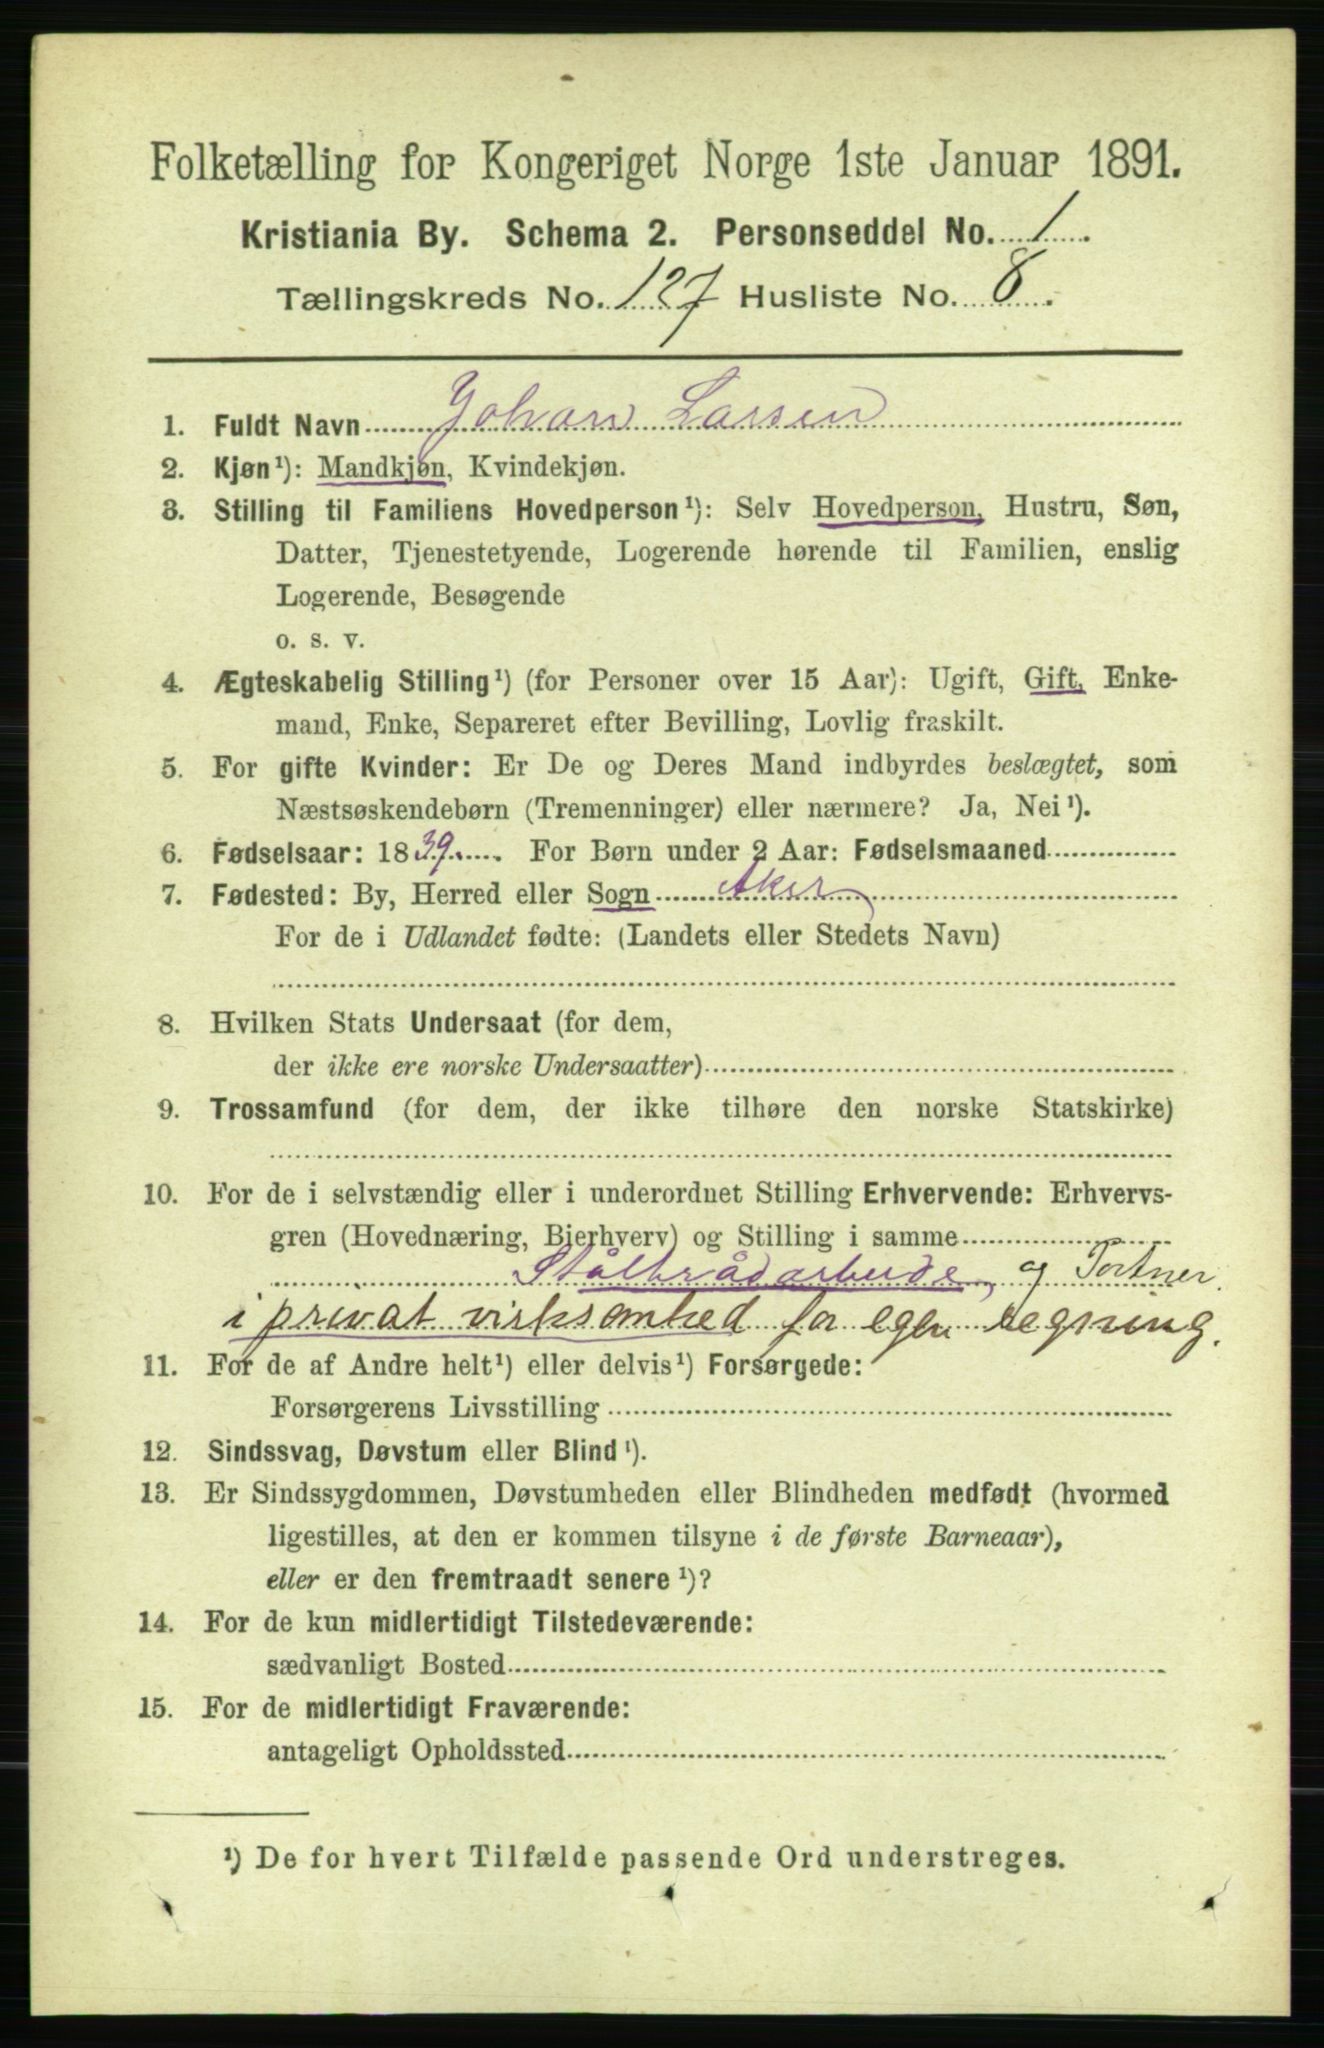 Folketælling for Kongeriget Norge 1ste Januar 1891.
Kristiania By. Schema 2. Personseddel No. 1.
Tællingskreds No. 127 Husliste No. 8.
1. Fuldt Navn Johan Larsen
2. Kjøn¹): Mandkjøn, Kvindekjøn.
3. Stilling til Familiens Hovedperson¹): Selv Hovedperson, Hustru, Søn,
Datter, Tjenestetyende, Logerende hørende til Familien, enslig
Logerende, Besøgende
o. s. v.
4. Ægteskabelig Stilling¹) (for Personer over 15 Aar): Ugift, Gift, Enke-
mand, Enke, Separeret efter Bevilling, Lovlig fraskilt.
5. For gifte Kvinder: Er De og Deres Mand indbyrdes beslægtet, som
Næstsøskendebørn (Tremenninger) eller nærmere? Ja, Nei¹).
6. Fødselsaar: 1839. For Børn under 2 Aar: Fødselsmaaned
7. Fødested: By, Herred eller Sogn Aker
For de i Udlandet fødte: (Landets eller Stedets Navn)
8. Hvilken Stats Undersaat (for dem,
der ikke ere norske Undersaatter)
9. Trossamfund (for dem, der ikke tilhøre den norske Statskirke)
10. For de i selvstændig eller i underordnet Stilling Erhvervende: Erhvervs-
gren (Hovednæring, Bierhverv) og Stilling i samme
Ståltrådarbeide, og Portner.
i privat virksomhed for egen regning.
11. For de af Andre helt¹) eller delvis¹) Forsørgede:
Forsørgerens Livsstilling
12. Sindssvag, Døvstum eller Blind¹).
13. Er Sindssygdommen, Døvstumheden eller Blindheden medfødt (hvormed
ligestilles, at den er kommen tilsyne i de første Barneaar),
eller er den fremtraadt senere¹)?
14. For de kun midlertidigt Tilstedeværende:
sædvanligt Bosted
15. For de midlertidigt Fraværende:
antageligt Opholdssted
¹) De for hvert Tilfælde passende Ord understreges.